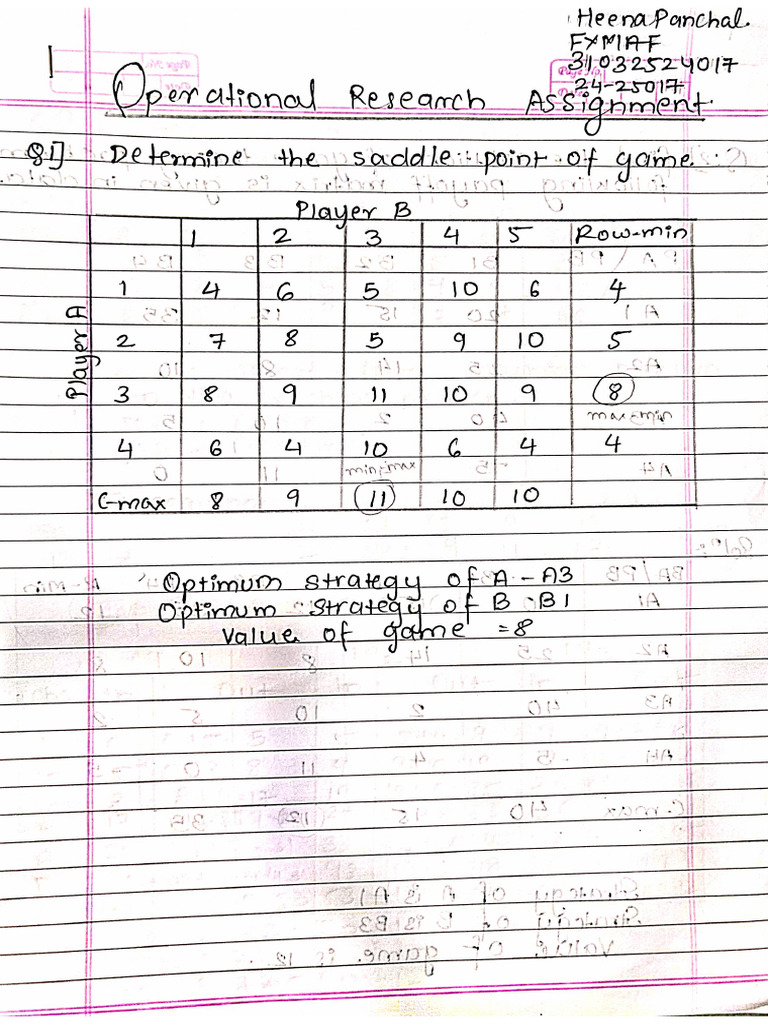 Heena Panchal.
FYMIAF
31032524017
24-25017
Operational Research Assignment.
Q1] Determine the saddle point of game.
Player B
1 2 3 4 5 Row-min
Player A
1 4 6 5 10 6 4
2 7 8 5 9 10 5
3 8 9 11 10 9 8
max-min
4 6 4 10 6 4 4
minimax
C-max 8 9 11 10 10
Optimum strategy of A - A3
Optimum strategy of B - B1
Value of game = 8